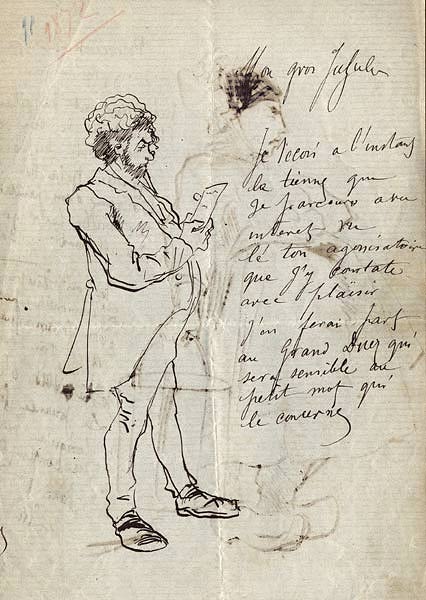 11 1872
Mon gros Jujules
Je reçois a l'instant
la tienne que
je parcours avec
interet vu
le ton agonisatoire
que j'y constate
avec plaisir
j'en ferai part
au Grand Duc qui
sera sensible au
petit mot qui
le concerne